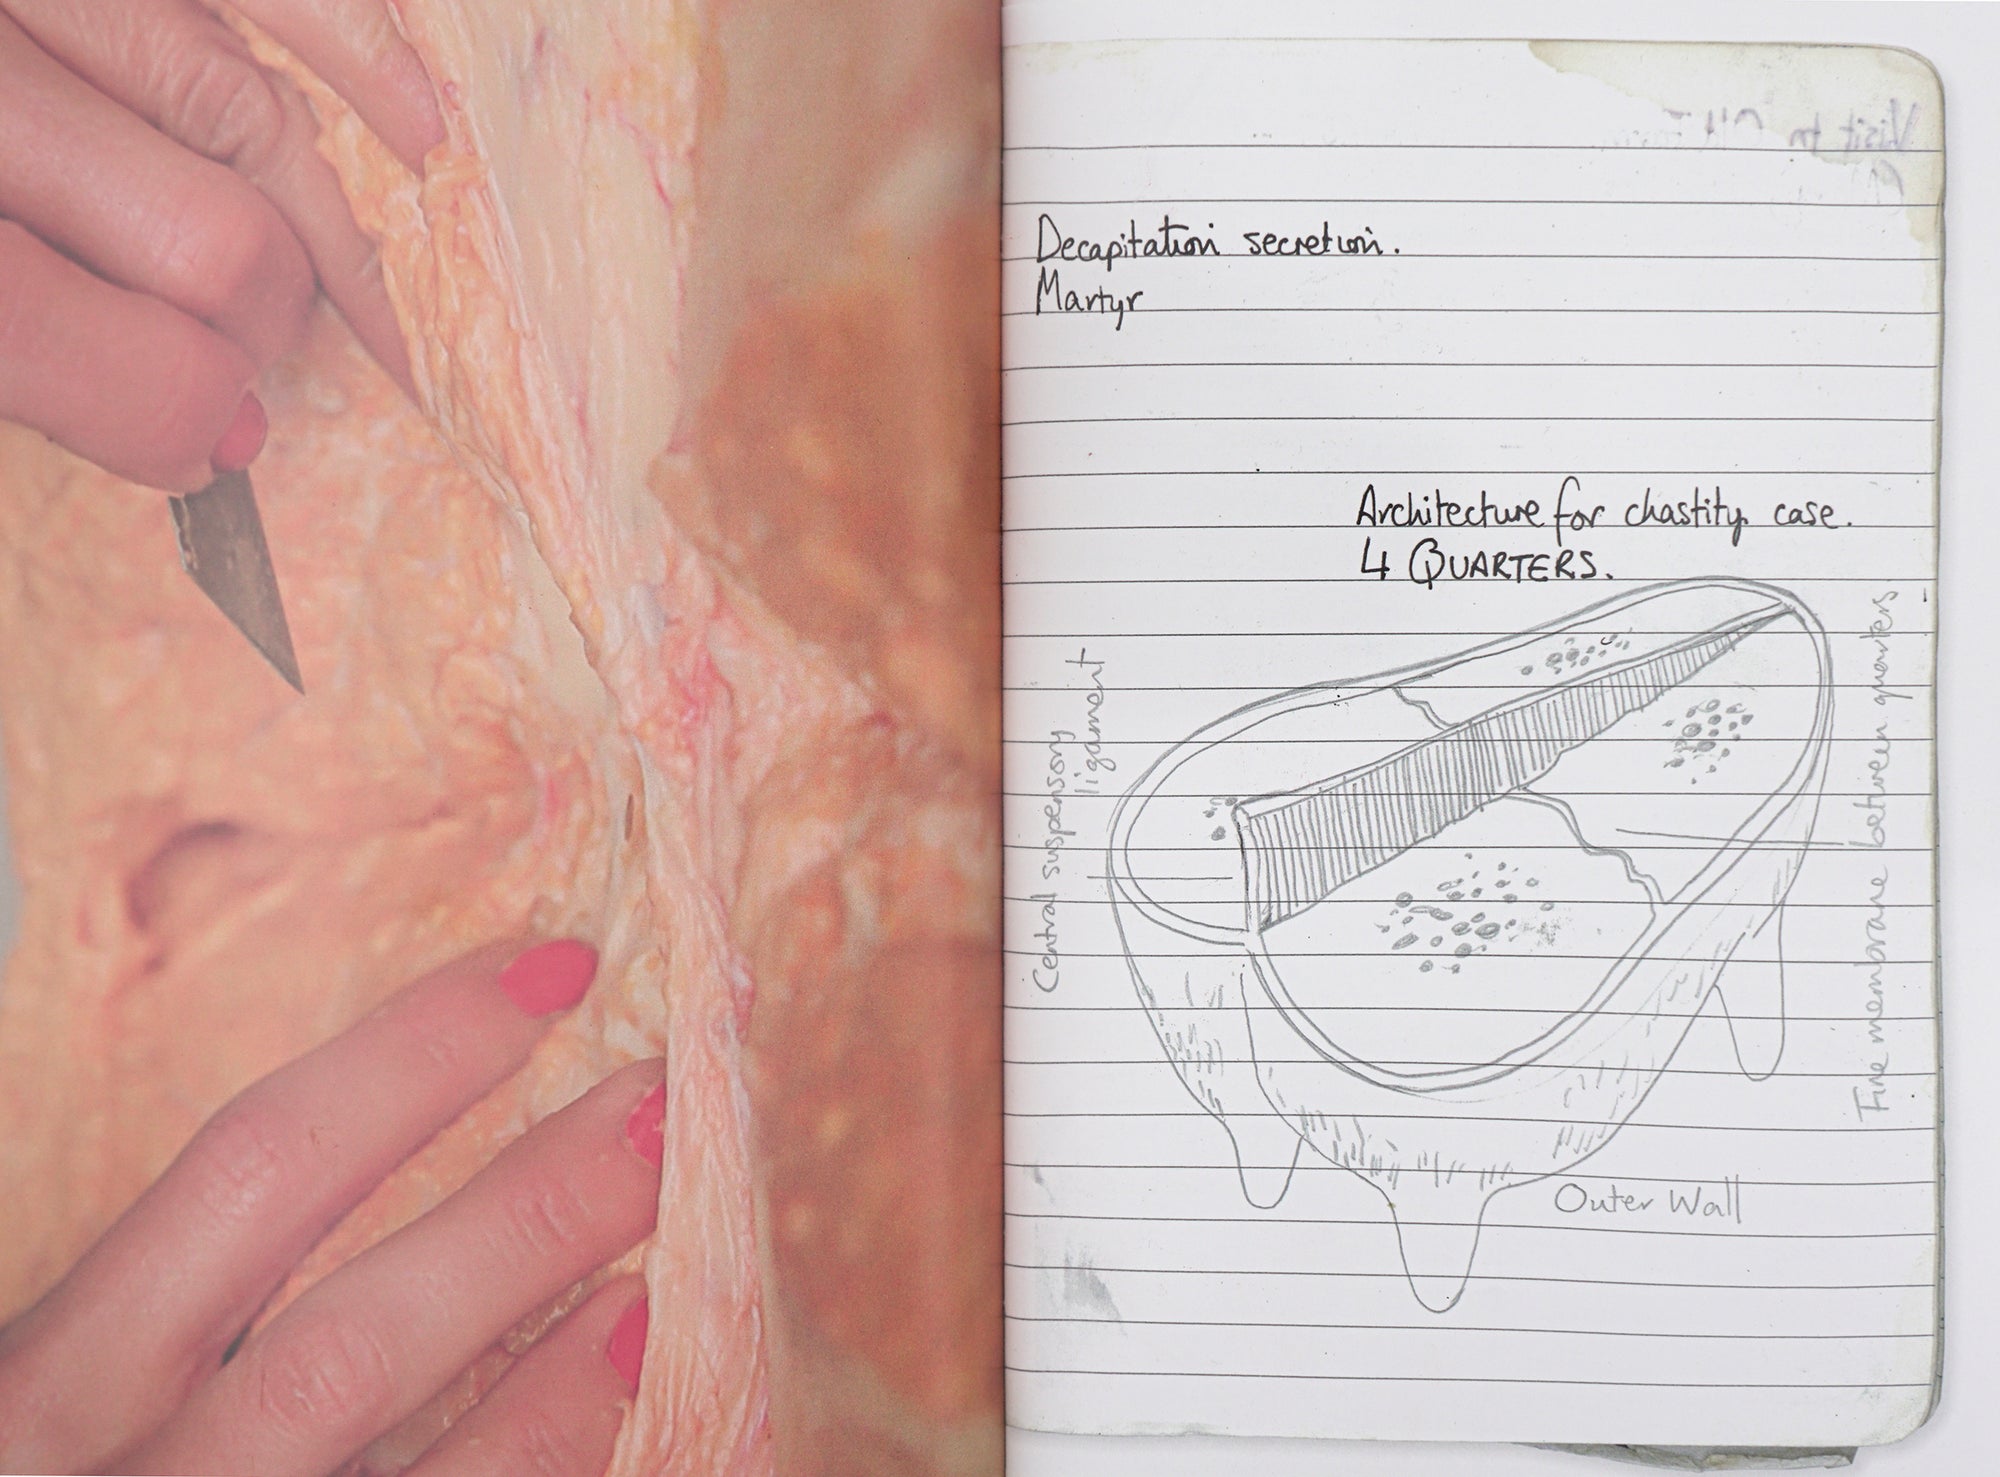 Visit to
Decapitation secretion.
Martyr
Architecture for chastity case.
4 QUARTERS.
Central suspensory
ligament
Fine membrane between quarters
Outer Wall